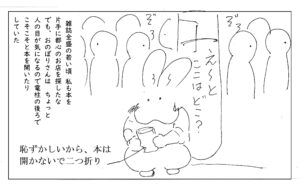 雑誌全盛の若い頃 私も本を
片手に都心のお店を探したな
でも、おのぼりさんは ちょっと
人の目が気になるので電柱の後ろで
こそこそと本を開いたり
していた
ぞろ
ぞろ
え〜と
ここはどこ?
恥ずかしいから、本は
開かないで二つ折り